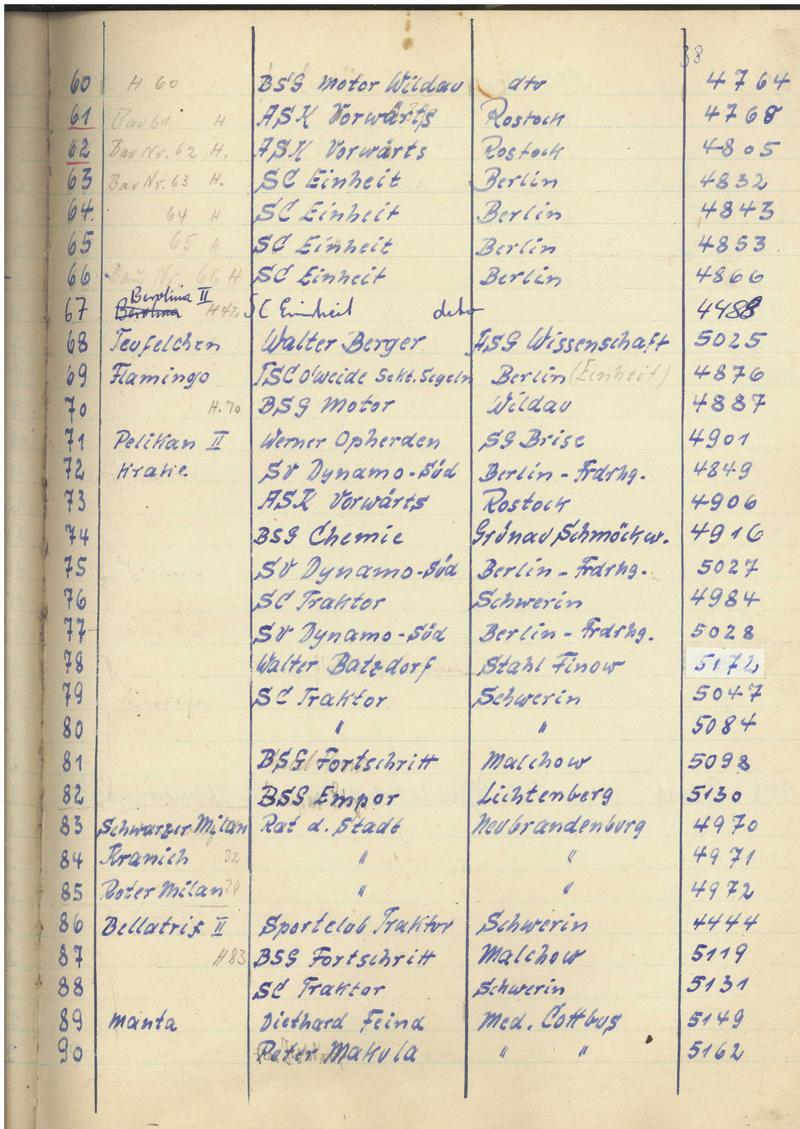 38
60 H 60 BSG Motor Wildau dto 4764
61 Bau 61 H ASK Vorwärts Rostock 4768
62 Bau Nr. 62 H. ASK Vorwärts Rostock 4805
63 Bau Nr. 63 H. SC Einheit Berlin 4832
64. 64 H SC Einheit Berlin 4843
65 65 " SC Einheit Berlin 4853
66 Bau Nr. 66 H SC Einheit Berlin 4866
Berolina II
67 Berolina SC Einheit dito 4488
68 Teufelchen Walter Berger HSG Wissenschaft 5025
69 Flamingo TSC O'weide Sekt. Segeln Berlin (Einheit) 4876
70 H. 70 BSG Motor Wildau 4887
71 Pelikan II Werner Opherden SG Brise 4901
72 Krake SV Dynamo-Süd Berlin - Frdrhg. 4849
73 ASK Vorwärts Rostock 4906
74 BSG Chemie Grünau Schmöckw. 4916
75 SV Dynamo-Süd Berlin - Frdrhg. 5027
76 SC Traktor Schwerin 4984
77 SV Dynamo-Süd Berlin - Frdrhg. 5028
78 Walter Batzdorf Stahl Finow 5172
79 SC Traktor Schwerin 5047
80 " " 5084
81 BSG Fortschritt Malchow 5098
82 BSG Empor Lichtenberg 5130
83 Schwarzer Milan Rat d. Stadt Neubrandenburg 4970
84 Kranich " " 4971
85 Roter Milan " " 4972
86 Bellatrix II Sportclub Traktor Schwerin 4444
87 H 83 BSG Fortschritt Malchow 5119
88 SC Traktor Schwerin 5131
89 Manta Diethard Feind Med. Cottbus 5149
90 Peter Makula " " 5162